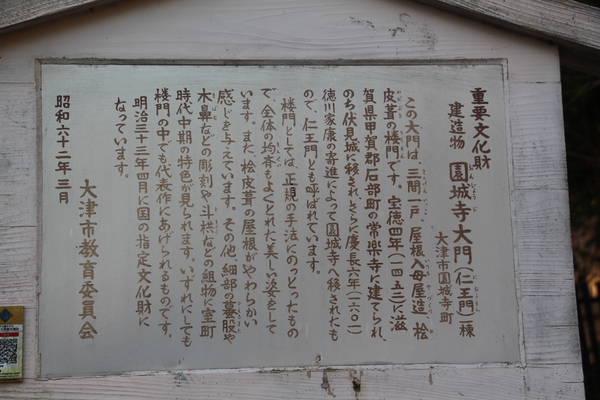 重要文化財
建造物 園城寺大門(仁王門)一棟
大津市園城寺町
この大門は、三間一戸 屋根入母屋造 桧
皮葺の楼門です。宝徳四年(一四五二)に滋
賀県甲賀郡石部町の常楽寺に建てられ、
のち伏見城に移され、さらに慶長六年(一六〇一)
徳川家康の寄進によって園城寺へ移されたも
ので、仁王門とも呼ばれています。
楼門としては、正規の手法にのっとったもの
で、全体の均斉もよくとれた美しい姿をして
います。また、桧皮葺の屋根がやわらかい
感じを与えています。その他、細部の蟇股や
木鼻などの彫刻や斗栱などの組物に室町
時代中期の特色が見られます。いずれにしても
楼門の中でも代表作にあげられるものです。
明治三十三年四月に国の指定文化財に
なっています。
大津市教育委員会
昭和六十二年三月